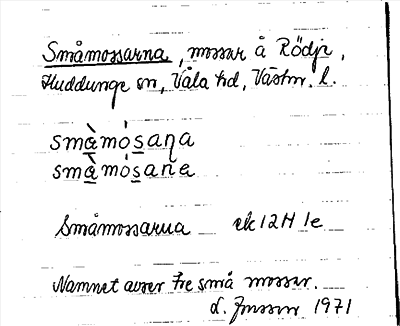 Småmossarna, mossar å Rödjr,
Huddunge sn, Våla hd, Västm. l.
smὰmósaɳa
smὰmósana
Småmossarna ek 12H 1e
Namnet avser tre små mossar.
1971